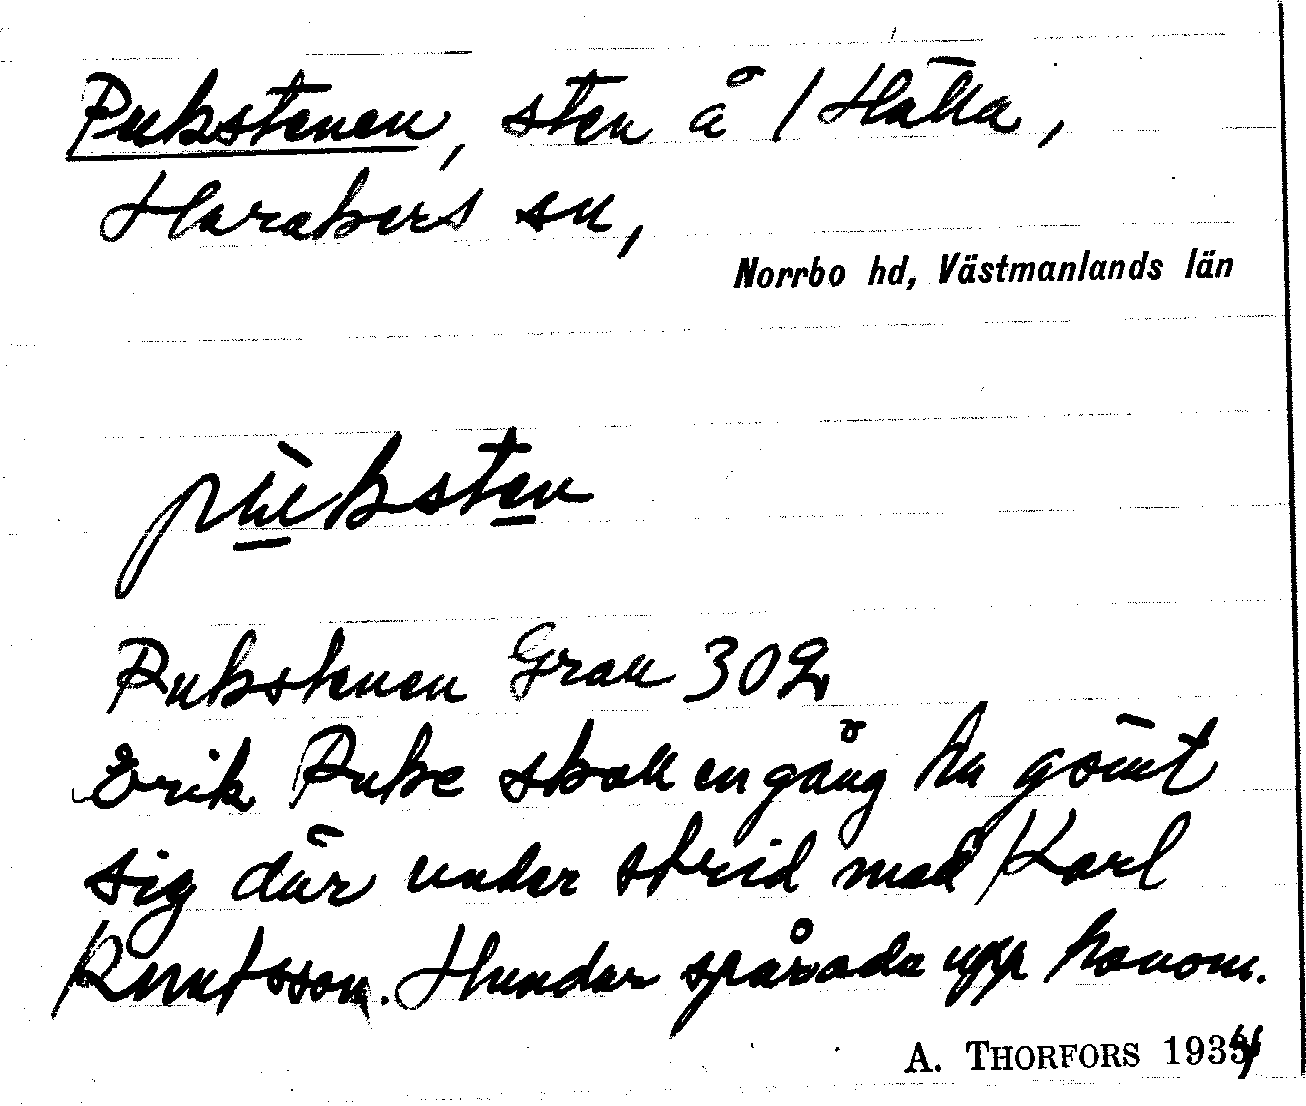 Pukstenen, sten å / Hälla,
Harakers sn,
Norrbo hd, Västmanlands län
pùksten
Pukstenen Grau 302
Erik Puke skall en gång ha gömt
sig där under strid med Karl
Knutsson. Hundar spårade upp honom.
A. THORFORS 1934